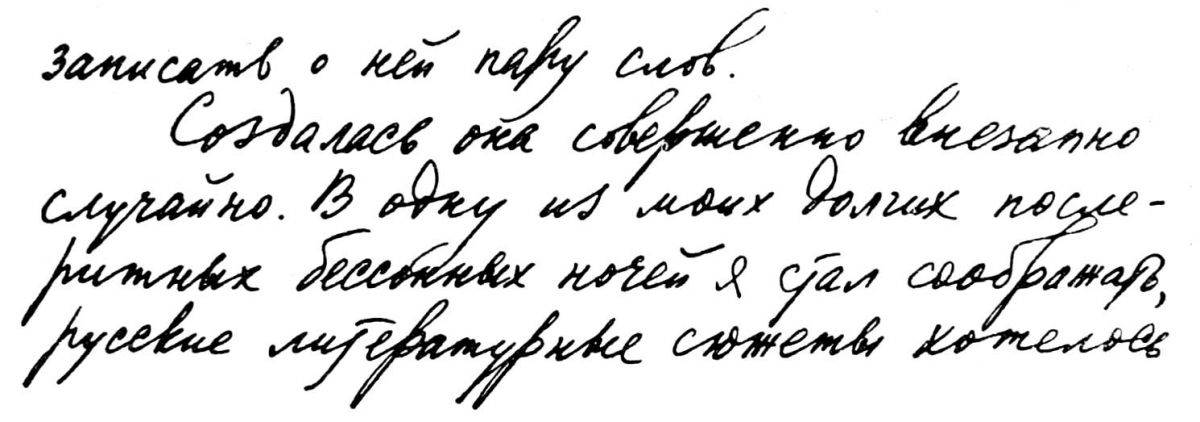 записать о ней пару слов.
Создалась она совершенно внезапно
случайно. В одну из моих долгих после-
ритных бессонных ночей я стал соображать,
русские литературные сюжеты хотелось